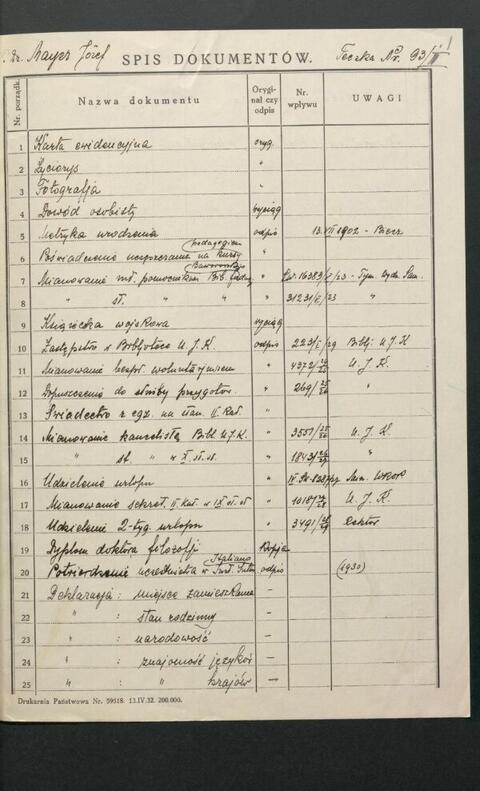 Dr. Mayer Józef SPIS DOKUMENTÓW. Teczka Nr. 93/II
Nr. porządk. Nazwa dokumentu Oryginał czy odpis Nr. wpływu UWAGI
1 Karta ewidencyjna oryg.
2 Życiorys "
3 Fotografja "
4 Dowód osobisty wyciąg
5 Metryka urodzenia odpis 13.VII 1902 - Biecz
pedagogiczn
6 Poświadczenie uczęszczania na kursy "
Baworowskiego
7 Mianowanie mł. pomocnikiem Bibl. " 16383/I/23 - Tym. Wydz. Sam.
8 " st. " " " 31231/I/23 "
9 Książeczka wojskowa wyciąg
10 Zastępstwo w Bibljotece U.J.K. odpis 223/I/29 Bibl. U.J.K
11 Mianowanie bezpł. wolontarjuszem " 4372/24/25 U.J.K.
12 Dopuszczenie do służby przygotow. " 269/25
13 Świadectwo z egz. na stan. II. kat. "
14 Mianowanie kancelistą Bibl. U.J.K. " 3551/25/26 U.J.K.
15 " st. " w X st. sł. " 1843/26/27
16 Udzielenie urlopu "
17 Mianowanie sekret. II. kat. w IX st. sł " 1018/27/28 U.J.K.
18 Udzielenie 2-tyg. urlopu " 3491/28/29 Rektor
19 Dyplom doktora filozofji Kopja
Italiano
20 Potwierdzenie uczestnictwa w odpis (1930)
21 Deklaracja: miejsce zamieszkania —
22 " : stan rodzinny —
23 " : narodowość —
24 " : znajomość języków —
25 " : " krajów —
Drukarnia Państwowa Nr. 59518. 13.IV.32. 200.000.